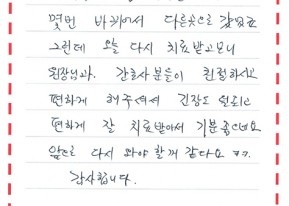 몇번 바뀌어서 다른곳으로 갔었고
그런데 오늘 다시 치료받고보니
원장님과 간호사분들이 친절하시고
편하게 해주셔서 긴장도 안되고
편하게 잘 치료받아서 기분좋으네요
앞으로 다시 와야 할꺼 같다요 ㅋㅋ.
감사합니다.